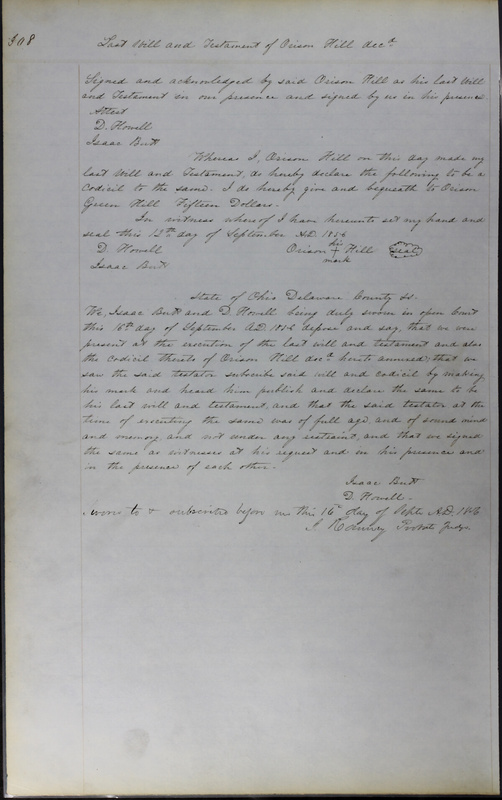 308
Last Will and Testament of Orison Hill decd.
Signed and acknowledged by said Orison Hill as his last Will
and Testament in our presence and signed by us in his presence
Attest
D. Howell
Isaac Butt
Whereas I, Orison Hill on this day made my
last Will and Testament, do hereby declare the following to be a
Codicil to the same. I do hereby give and bequeath to Orison
Green Hill Fifteen Dollars.
In witness whereof I have hereunto set my hand and
seal this 13th day of September A.D. 1856
D. Howell Orison his + mark Hill Seal
Isaac Butt
State of Ohio Delaware County ss.
We, Isaac Butt and D. Howell being duly sworn in open Court
this 16th day of September A.D. 1856 depose and say, that we were
present at the execution of the last will and testament and also
the codicil thereto of Orison Hill decd. hereto annexed; that we
saw the said testator subscribe said will and codicil by making
his mark and heard him publish and declare the same to be
his last will and testament, and that the said testator at the
time of executing the same was of full age and of sound mind
and memory and not under any restraint, and that we signed
the same as witnesses at his request and in his presence and
in the presence of each other.
Isaac Butt
D. Howell.
Sworn to & subscribed before me this 16th day of Sept. A.D. 1856
Probate Judge